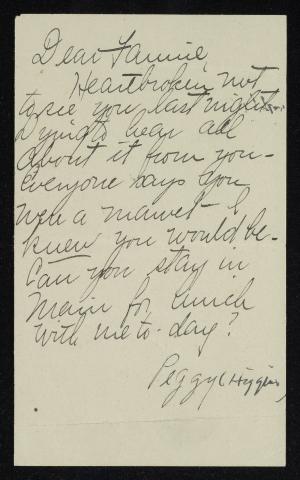 Dear Fannie,
Heartbroken not
to see you last night
Dying to hear all
about it from you -
Everyone says you
were a marvel - I
knew you would be -
Can you stay in
Main for lunch
with me to-day?
Peggy (Higgins)